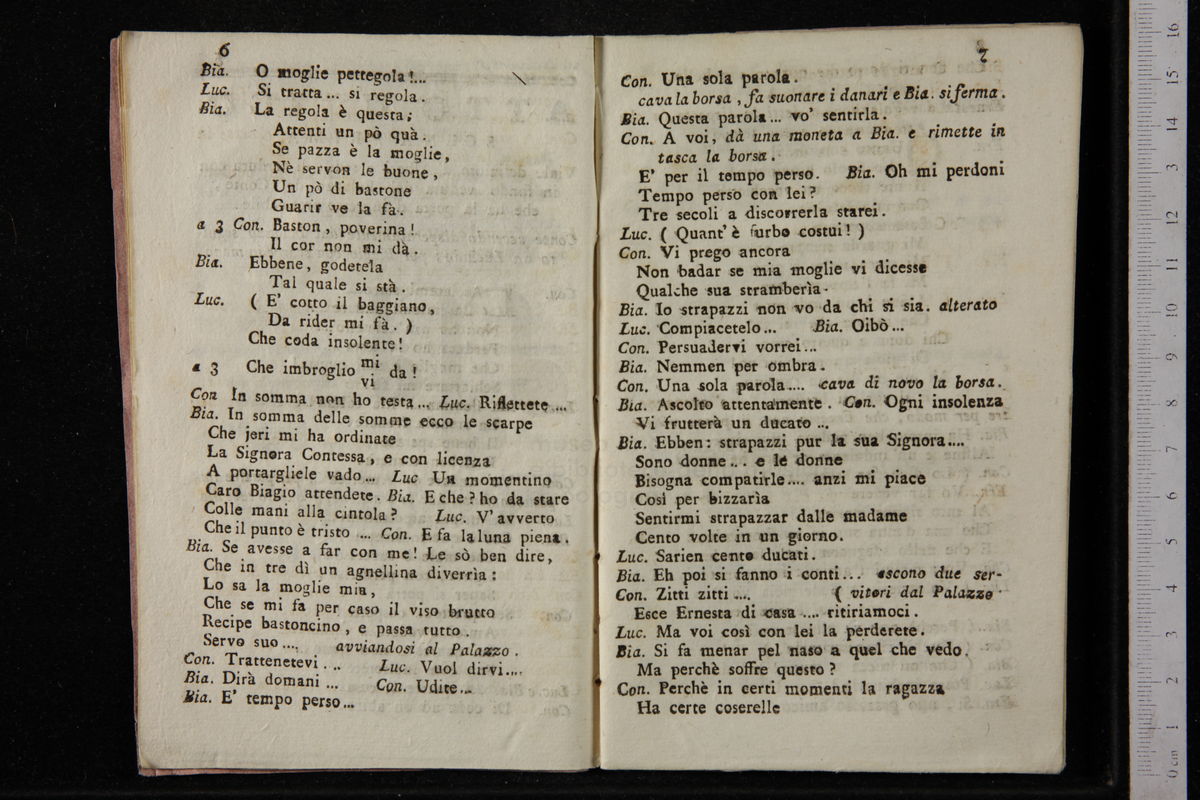 6
Bia. O moglie pettegola!...
Luc. Si tratta... si regola.
Bia. La regola è questa;
Attenti un pò quà.
Se pazza è la moglie,
Nè servon le buone,
Un pò di bastone
Guarir ve la fà.
a 3 Con. Baston, poverina!
Il cor non mi dà.
Bia. Ebbene, godetela
Tal quale si stà.
Luc. ( E' cotto il baggiano,
Da rider mi fà. )
Che coda insolente!
a 3 Che imbroglio mi da!
vi
Con In somma non ho testa... Luc. Riflettete...
Bia. In somma delle somme ecco le scarpe
Che jeri mi ha ordinate
La Signora Contessa, e con licenza
A portargliele vado... Luc Un momentino
Caro Biagio attendete. Bia. E che? ho da stare
Colle mani alla cintola? Luc. V'avverto
Che il punto è tristo ... Con. E fa la luna piena.
Bia. Se avesse a far con me! Le sò ben dire,
Che in tre dì un agnellina diverrìa:
Lo sa la moglie mia,
Che se mi fa per caso il viso brutto
Recipe bastoncino, e passa tutto.
Servo suo.... avviandosi al Palazzo.
Con. Trattenetevi... Luc. Vuol dirvi....
Bia. Dirà domani ... Con. Udite...
Bia. E' tempo perso...
7
Con. Una sola parola.
cava la borsa, fa suonare i danari e Bia. si ferma.
Bia. Questa parola... vo' sentirla.
Con. A voi, dà una moneta a Bia. e rimette in
tasca la borsa.
E' per il tempo perso. Bia. Oh mi perdoni
Tempo perso con lei?
Tre secoli a discorrerla starei.
Luc. ( Quant'è furbo costui! )
Con. Vi prego ancora
Non badar se mia moglie vi dicesse
Qualche sua stramberìa.
Bia. Io strapazzi non vo da chi si sia. alterato
Luc. Compiacetelo... Bia. Oibò...
Con. Persuadervi vorrei...
Bia. Nemmen per ombra.
Con. Una sola parola.... cava di novo la borsa.
Bia. Ascolto attentamente. Con. Ogni insolenza
Vi frutterà un ducato ...
Bia. Ebben: strapazzi pur la sua Signora....
Sono donne... e le donne
Bisogna compatirle.... anzi mi piace
Così per bizzarìa
Sentirmi strapazzar dalle madame
Cento volte in un giorno.
Luc. Sarien cento ducati.
Bia. Eh poi si fanno i conti... escono due ser-
Con. Zitti zitti .... ( vitori dal Palazzo.
Esce Ernesta di casa .... ritiriamoci.
Luc. Ma voi così con lei la perderete.
Bia. Si fa menar pel naso a quel che vedo.
Ma perchè soffre questo?
Con. Perchè in certi momenti la ragazza
Ha certe coserelle